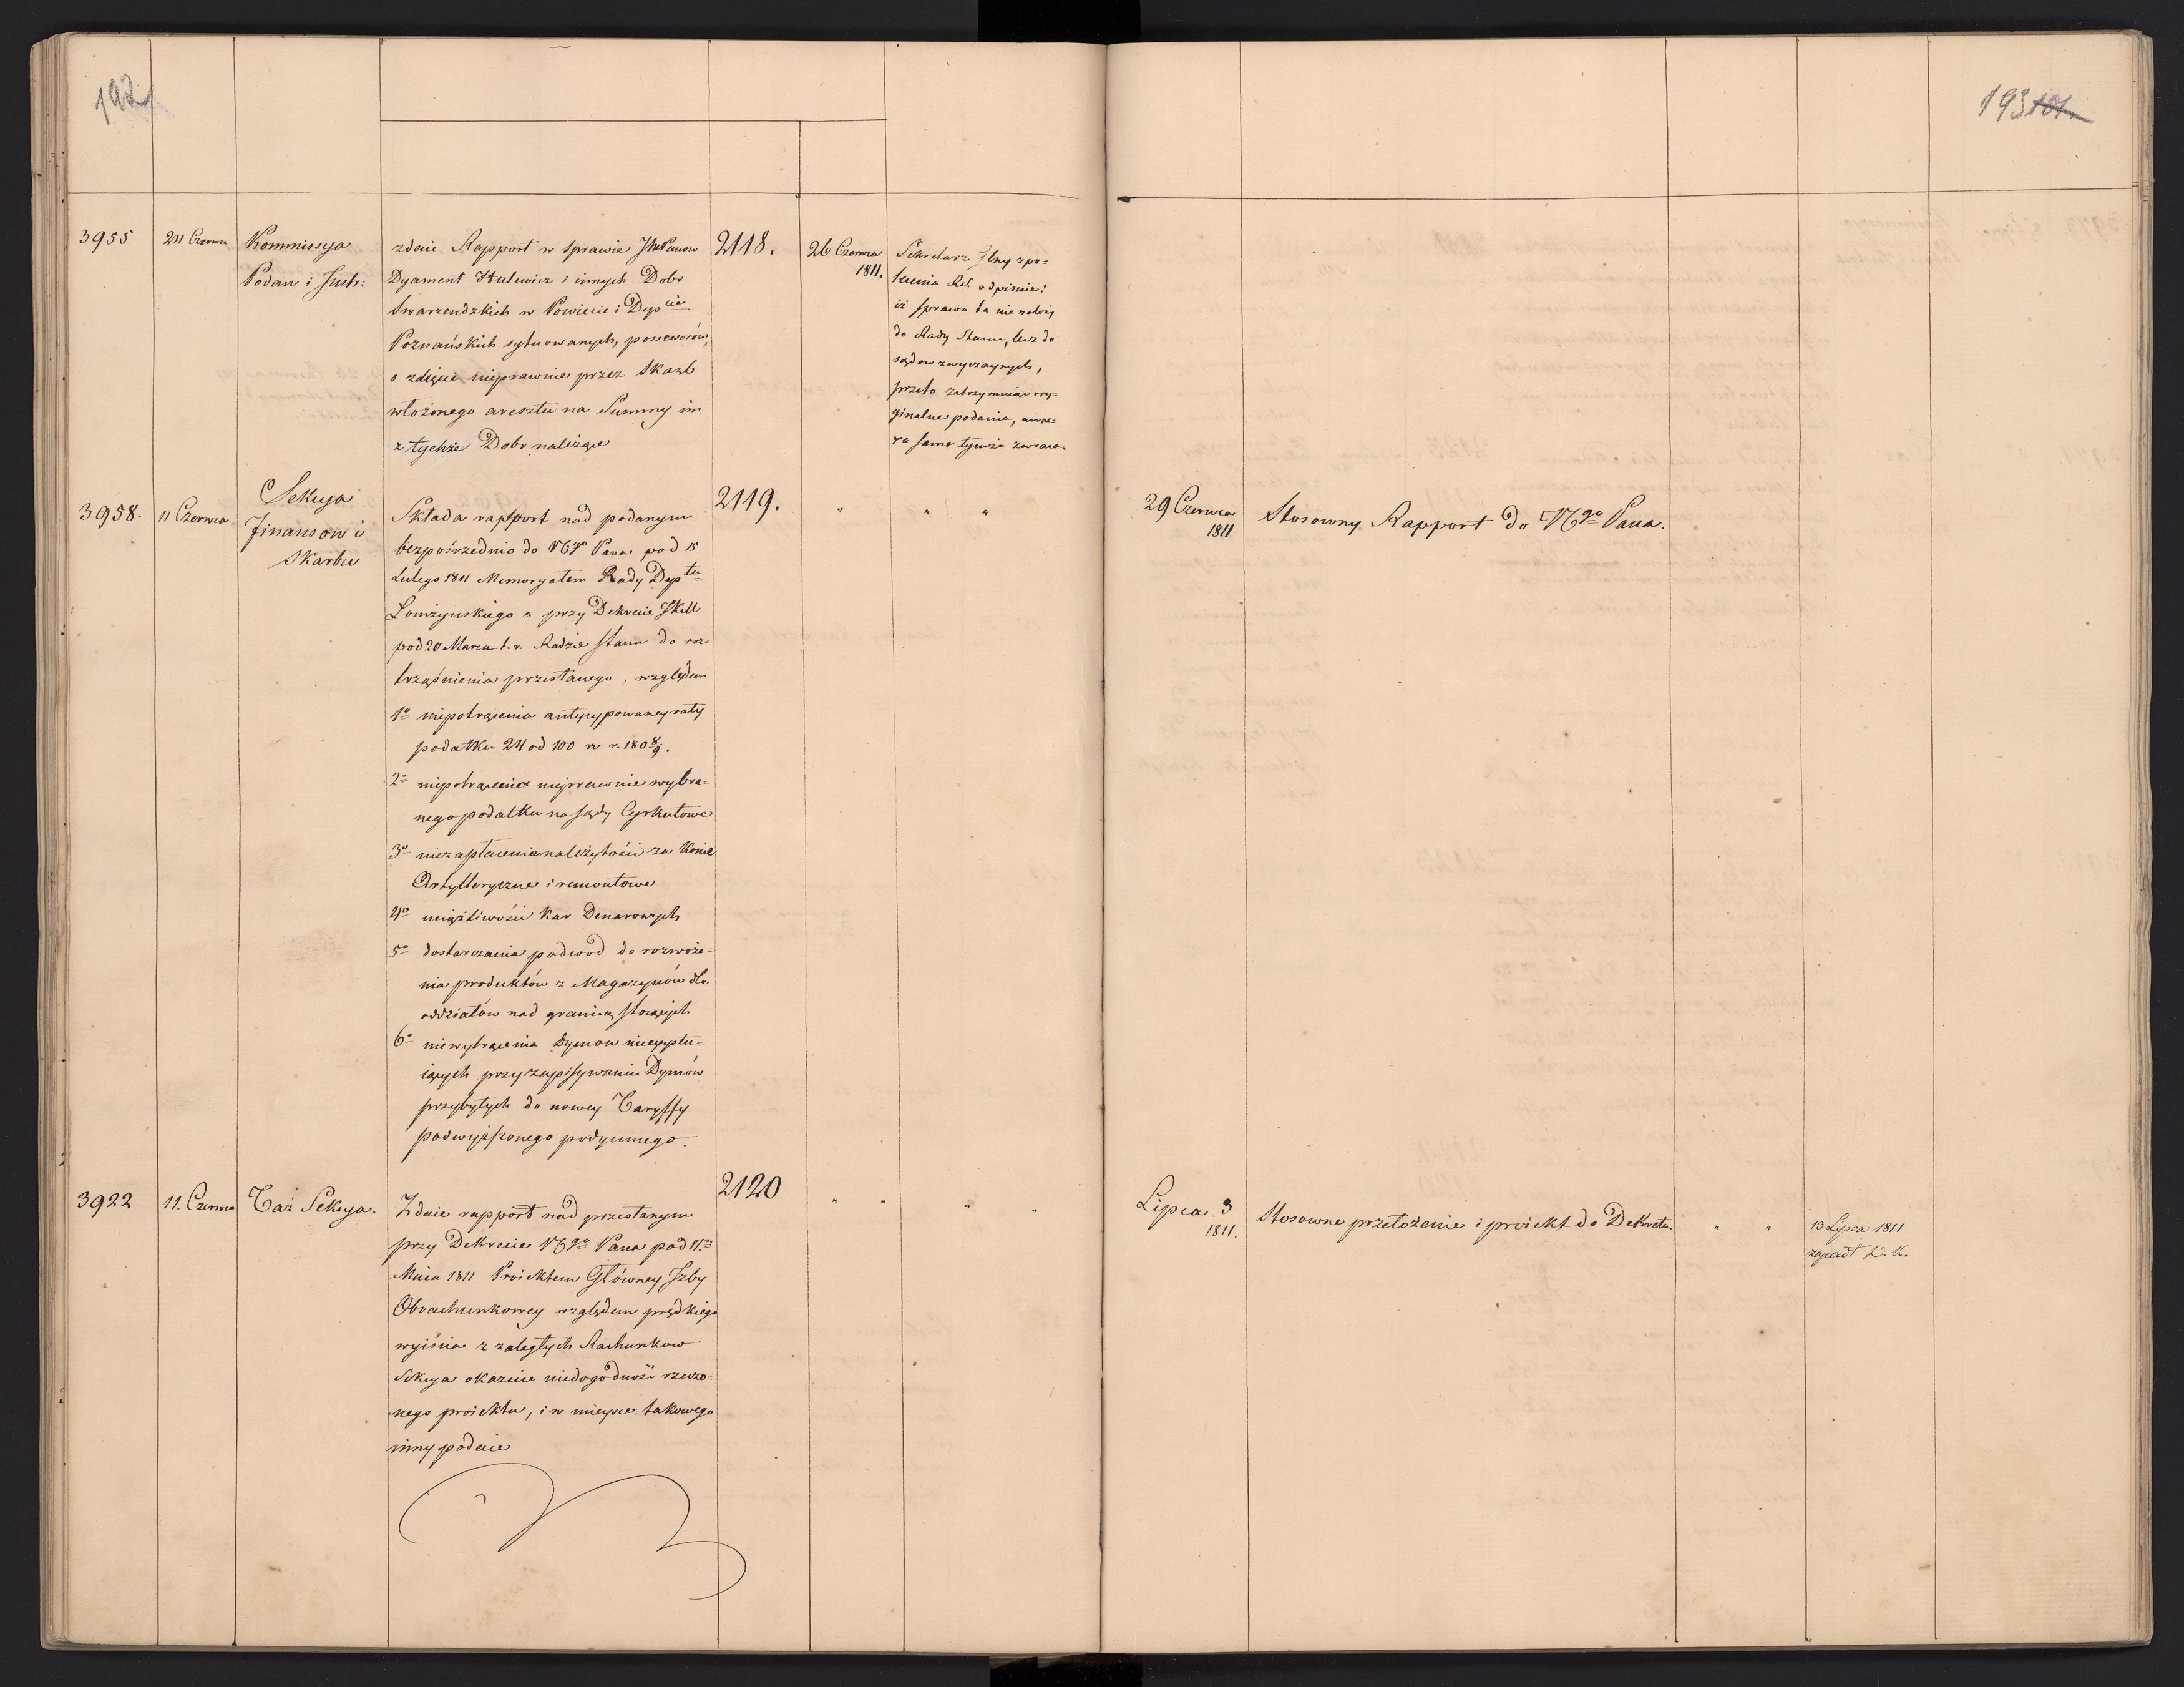 192
193 101.
3955
24 Czerwca
Kommissya
Podan i Instr:
zdaie Rapport w sprawie JhPanow
Dyament Hulewicz i innych Dobr
Swarzendzkich w Powiecie i Dep cie
Poznańskich sytuowanych, possessorów,
o zdięcie nieprawnie przez Skarb
włożonego aresztu na Summy im
z tychże Dobr należące
2118.
26 Czerwca
1811.
Sekretarz Glny z po-
lecenia odpisuie:
iż sprawa ta nie należy
do Rady Stanu, lecz do
sądow zwyczaynych,
przeto zatrzymuiac ory-
ginalne podania,
zwraca.
3958.
11 Czerwca
Sekcya
Finansow i
Skarbu
Składa rapport nad podanym
bezpośrzednio do NGo Pana pod 15
Lutego 1811 Memoryałem Rady Dep tu
Łomżynskiego a przy Dekrecie
pod 20 Marca t. r. Radzie Stanu do roz-
trząśnienia przesłanego, względem
1o niepotrącenia antycypowaney raty
podatku 24 od 100 w r. 180 8/9.
2o niepotrącenia nieprawnie wybra-
nego podatku na sądy Cyrkułowe
3o niezapłacenia należytości za Konie
Artylleryczne i remontowe
4o uciążliwości Kar Denarowych
5o dostarczania podwod do rozwoże-
nia produktów z Magazynów dla
oddziałów nad granicą stoiących
6o niewytrącenia Dymow nieexystu-
iących przy zapisywaniu Dymów
przybyłych do nowey Taryffy
podwyższonego podymnego.
2119.
" " "
29 Czerwca
1811
Stosowny Rapport do NGo Pana.
3922
11. Czerwca
Taż Sekcya.
Zdaie rapport nad przesłanym
przy Dekrecie NGo Pana pod 11.
Maia 1811 Proiektem Główney Izby
Obrachunkowey względem prędkiego
wyiścia z zaległych Rachunkow
Sekcya okazuie niedogodność rzeczo-
nego proiektu, i w mieysce takowego
inny podaie
2120
" " " "
Lipca 3
1811.
Stosowne przełożenie i proiekt do Dekretu
" "
13 Lipca 1811
zapadł D. K.